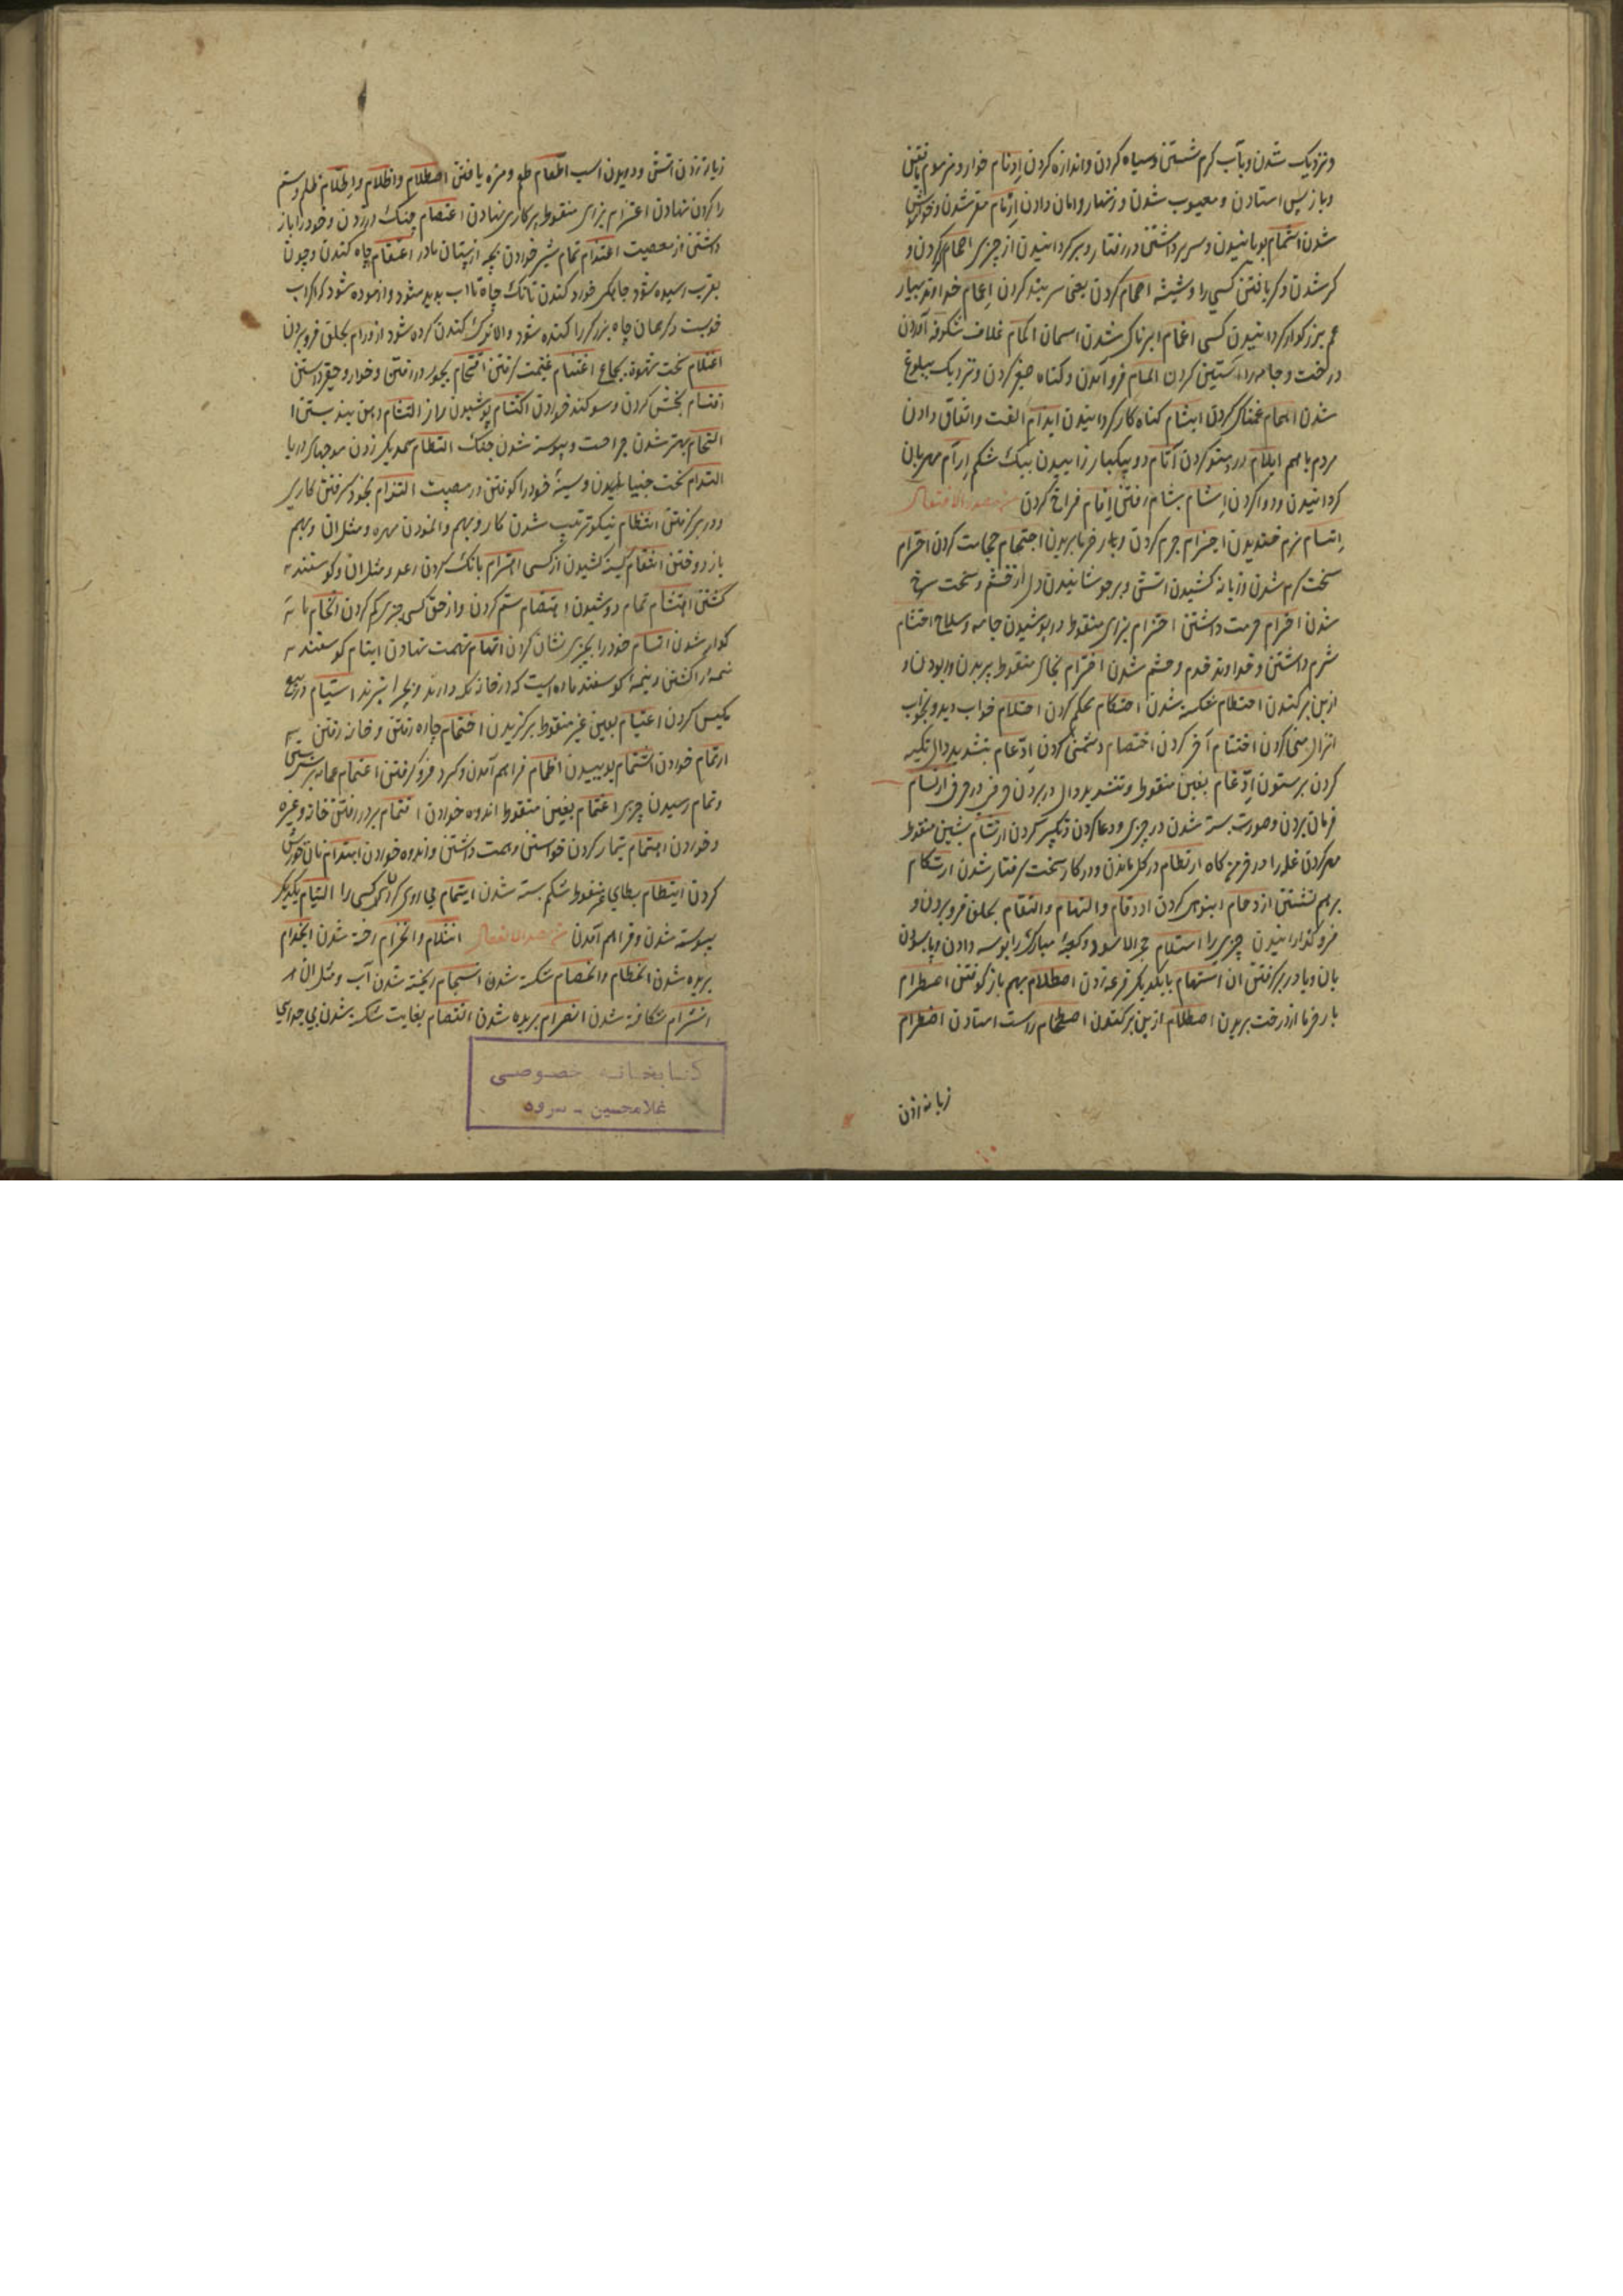 ونزدیک شدن وبآب کرم شستن وسیاه کردن واندازه کردن اذمام خوار ومزموم یافتن
وباز پس استادن و معیوب شدن و زنهار وامان دادن ارمام شدن وخاموش
شدن اشمام بویانیدن وسر برداشتن در رفتار وبرکردانیدن از چیزی اصمام کر کردن و
کر شدن وکر یافتن کسی را وشیشه اصمام کردن یعنی سر بند کردن اعمام خداوند بسیار
عم بزرکوار کردانیدن کسی اغمام ابرناک شدن اسمان اکمام غلاف شکوفه آوردن
درخت وجامه را استین کردن المام فرو آمدن وکناه صغیر کردن ونزدیک ببلوغ
شدن اهمام غمناک کردن ایثام کناه کار کردانیدن ایدام الفت واتفاق دادن
مردم باهم ایلام دردمند کردن اتآم دو بیکبار زاییدن بیک شکم ارآم مهربان
کردانیدن ودوا کردن اشام بشام رفتن افام فراخ کردن من مصدر الافتعال
ابتسام نرم خندیدن اجترام جرم کردن وبار خرما بریدن احتجام حجامت کردن احترام
سخت کرم شدن وزبانه کشیدن اتش وبر جوشانیدن دل از خشم وسخت سرخ
شدن احترام حرمت داشتن احتزام بزای منقوط در پوشیدن جامه وسلاح احتشام
شرم داشتن وخداوند خدم وحشم شدن اخترام بخای منقوط بریدن وربودن و
ازبن برکندن احتطام شکسته شدن احتکام محکم کردن احتلام خواب دیدن وبخواب
انزال منی کردن اختتام آخر کردن اختصام دشمنی کردن ادّعام بتشدید دال تکیه
کردن برستون ادّغام بغین منقوط وتشدید دال در بردن حرفی در حرفی ارتسام
فرمان بردن وصورت بسته شدن در چیزی ودعا کردن وتکبیر کردن ارتشام بشین منقوط
مهر کردن غله را ودر خرمن کاه ارتطام در کل ماندن ودر کار سخت کرفتار شدن ارتکام
برهم نشستن ازدحام انبوهی کردن ازدقام والتهام والتقام بحلق فرو بردن و
فرو کذرانیدن چیزی را استلام حجر الاسود وکعبهٔ مبارک را بوسه دادن وبا سودن
بان ویا در بر کرفتن ان استهام بایکدیکر قرعه زدن اصطلام بهم باز کوفتن اصطرام
بار خرما از درخت بریدن اصطلام ازبن برکندن اصطخام راست استادن اضطرام
زبانه زدن
زبانه زدن اتش ودویدن اسب اطّعام طعم ومزه یافتن اضطلام واظلام واطّلام ظلم وستم
را کردن نهادن اعتزام بزای منقوط بر کاری نهادن اعتصام چنک در زدن وخود را باز
داشتن از معصیت اعتدام تمام شیر خوردن بچه از پستان مادر اعتقام چاه کندن وچون
بقرب رسیده شود چاهی خورد کندن تا تک چاه تا اب پدید شود وازموده شود که اکر اب
خوبست دکر همان چاه بزرک را کنده شود والا ترک کندن کرده شود ازدرام بحلق فرو بردن
اغتلام سخت شهوة بجماع اغتنام غنیمت کرفتن اقتحام بجور در رفتن وخوار وحقیر داشتن
اقتسام بخش کردن وسوکند خوردن اکتتام پوشیدن راز التثام دهن بند بستن ا
التحام بهتر شدن جراحت وپیوسته شدن جنک التطام بهمدیکر زدن موجهای دریا
التدام سخت جنبانیدن وسینهٔ خود را کوفتن در مصیبت التزام بخود کرفتن کاری
ودر بر کرفتن انتظام نیکو ترتیب شدن کار وبهم واامدن مهره ومثل ان وبهم
باز دوختن انتقام کینه کشیدن از کسی اهتزام بانک کردن رعد ومثل ان وکوسفند
کشتن اهتشام تمام دوشیدن اهتضام ستم کردن واز حق کسی چیزی کم کردن اتخام نا
کوار شدن اتسام خود را بچیزی نشان کردن اتهام تهمت نهادن ایتام کوسفند
تیمه را کشتن وتیمه کوسفند ماده است که در خانه نکه دارند وبچرا نبرند استیام در بیع
مکیس کردن اعتیام بعین غیر منقوط برکزیدن اختمام چاره رفتن وخانه رفتن
ارتمام خوردن اشتمام بوییدن انظمام فراهم آمدن وکرد فرو کرفتن اعتمام عمامه بر بستن
وتمام رسیدن چیزی اغتمام بغین منقوط اندوه خوردن اقتمام بر در رفتن خانه وغیره
وخوردن اهتمام تیمار کردن خواستن وهمت داشتن واندوه خوردن ایتدام نان خورش
کردن ایتطام بطای غیر منقوط شکم بسته شدن ایتمام پی روی کردن کسی را التیام بیکدیکر
پیوسته شدن وفراهم آمدن من مصدر الانفعال انثلام وانخرام رخنه شدن انجذام
بریده شدن انحطام وانخصام شکسته شدن انسجام ریخته شدن آب ومثل ان
انشرام شکافته شدن انصرام بریده شدن انفصام بغایت شکسته شدن بی جدایی
کتابخانه خصوصی
غلامحسین - سرود